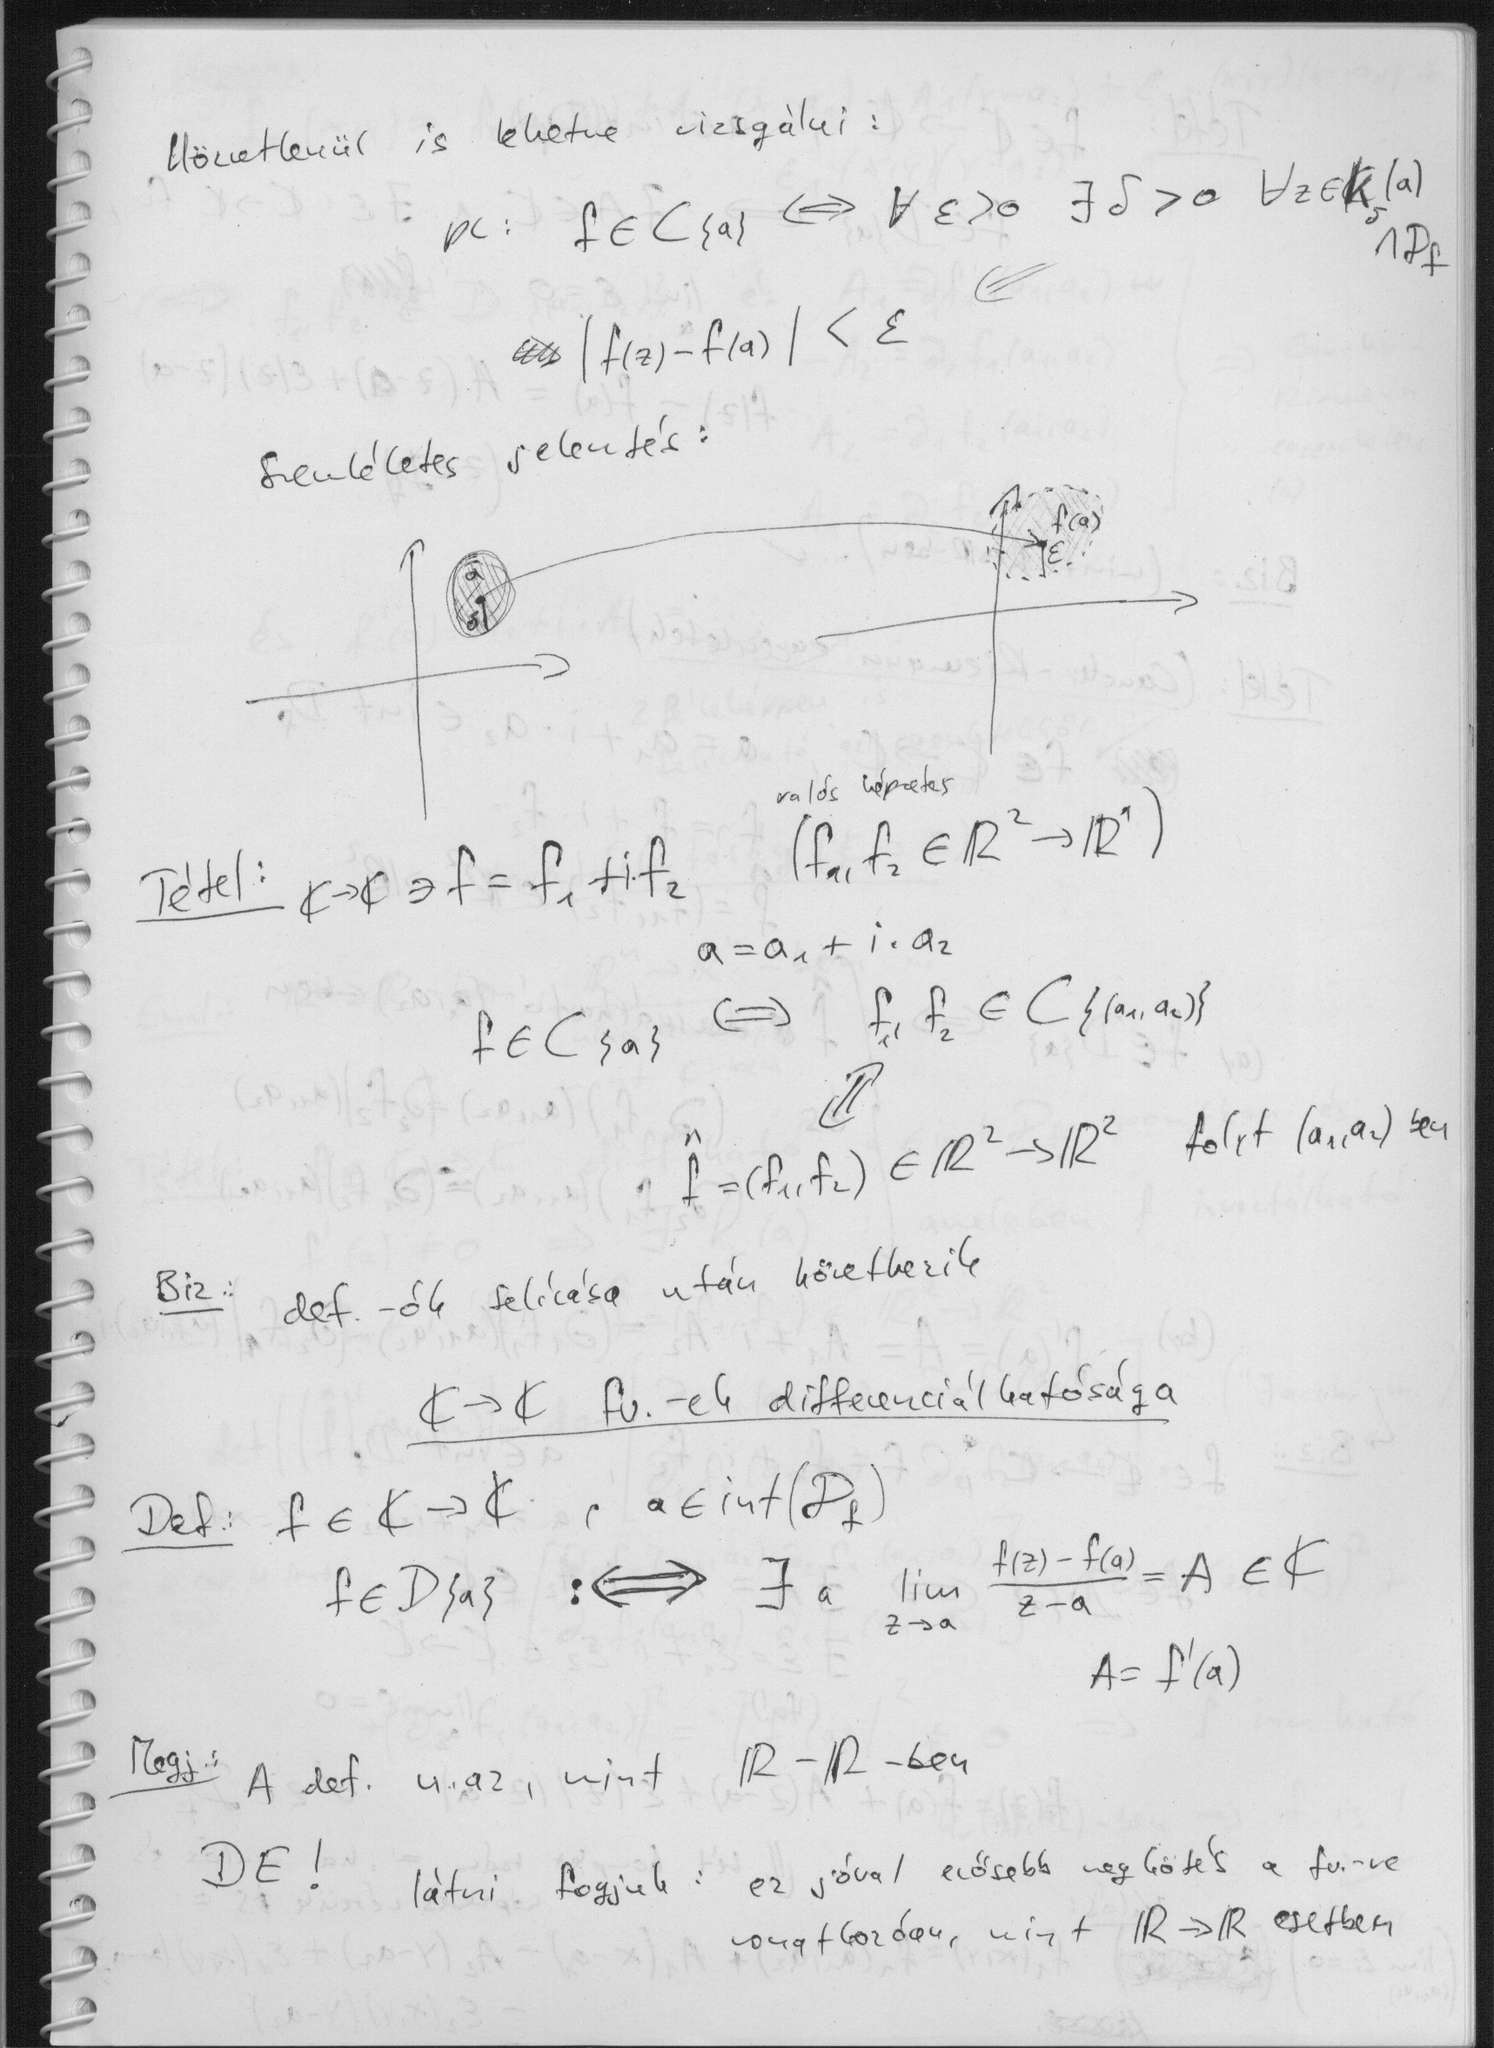 Közvetlenül is lehetne vizsgálni:
pl: f ∈ C{a} ⟺ ∀ ε>0 ∃ δ>0 ∀z∈K_δ(a)
∩D_f
|f(z)-f(a)| < ε
Szemléletes jelentés:
f(a)
a
ε
δ
valós képzetes
Tétel: ℂ→ℂ ∋ f = f₁ + i·f₂ (f₁, f₂ ∈ ℝ² → ℝ¹)
a = a₁ + i·a₂
f ∈ C{a} ⟺ f₁, f₂ ∈ C{(a₁,a₂)}
⇕
f̂ = (f₁,f₂) ∈ ℝ² → ℝ² folyt (a₁,a₂) ben
Biz: def.-ók felírása után következik
ℂ→ℂ fv.-ek differenciálhatósága
Def: f ∈ ℂ → ℂ, a ∈ int(D_f)
f ∈ D{a} :⟺ ∃ a lim_{z→a} (f(z)-f(a))/(z-a) = A ∈ ℂ
A = f'(a)
Megj: A def. u.az, mint ℝ-ℝ-ben
DE! látni fogjuk: ez jóval erősebb megkötés a fv.-re
vonatkozóan, mint ℝ→ℝ esetben